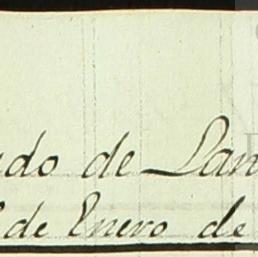 do de Lan
de Enero de